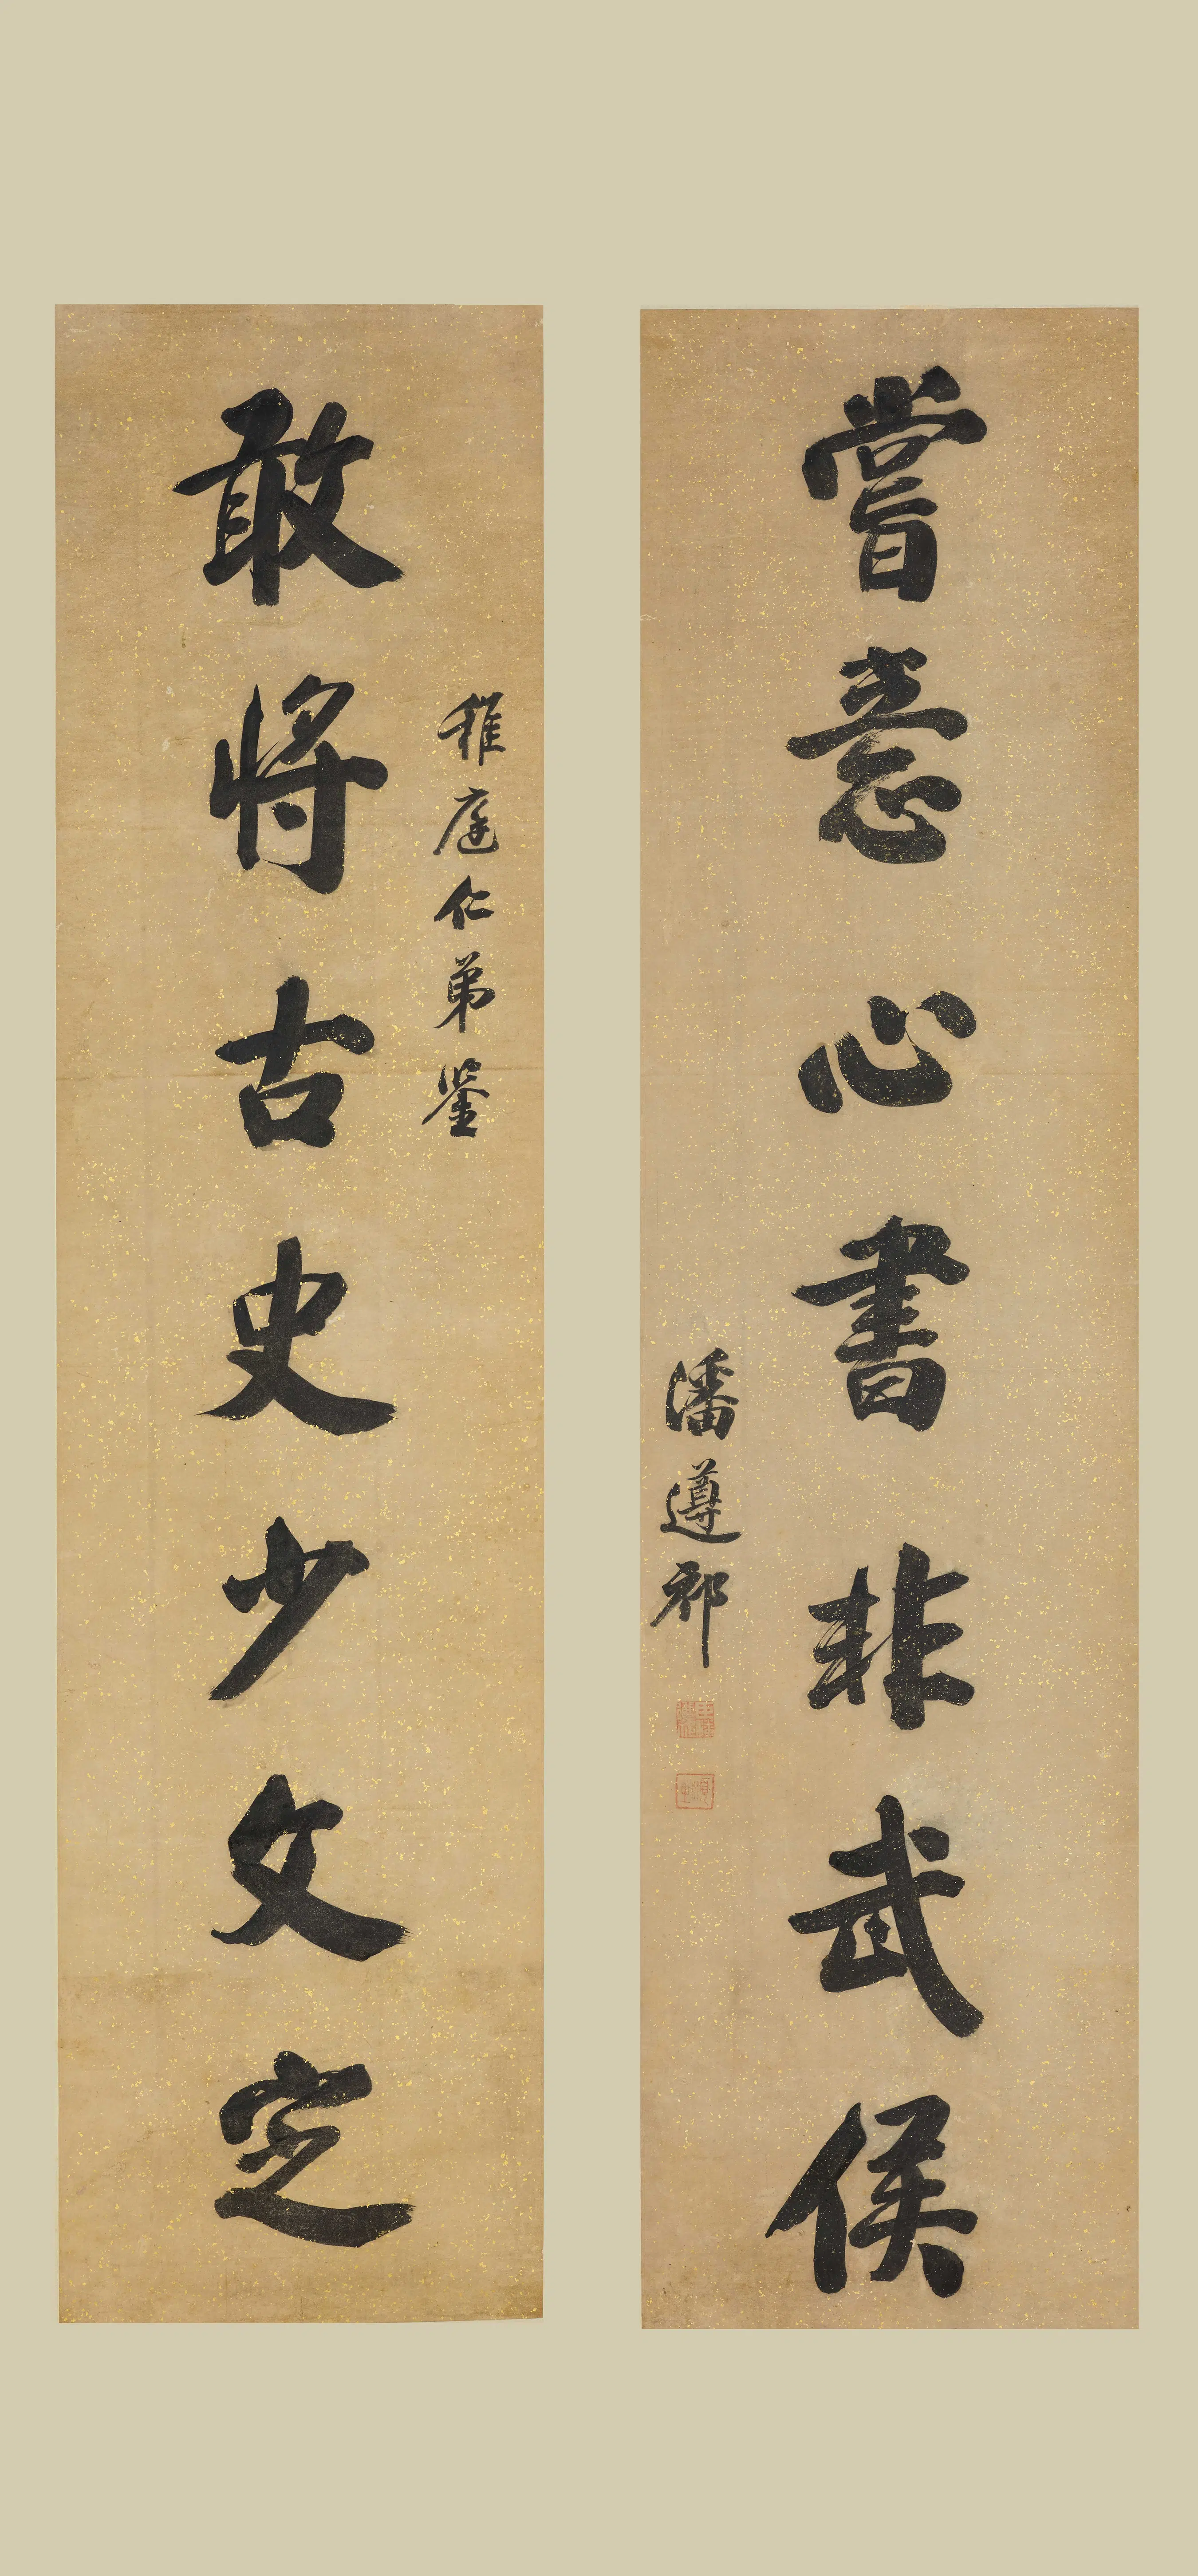 稚庭仁弟鑒
敢將古史少文定
嘗意心書非武侯
潘遵祁